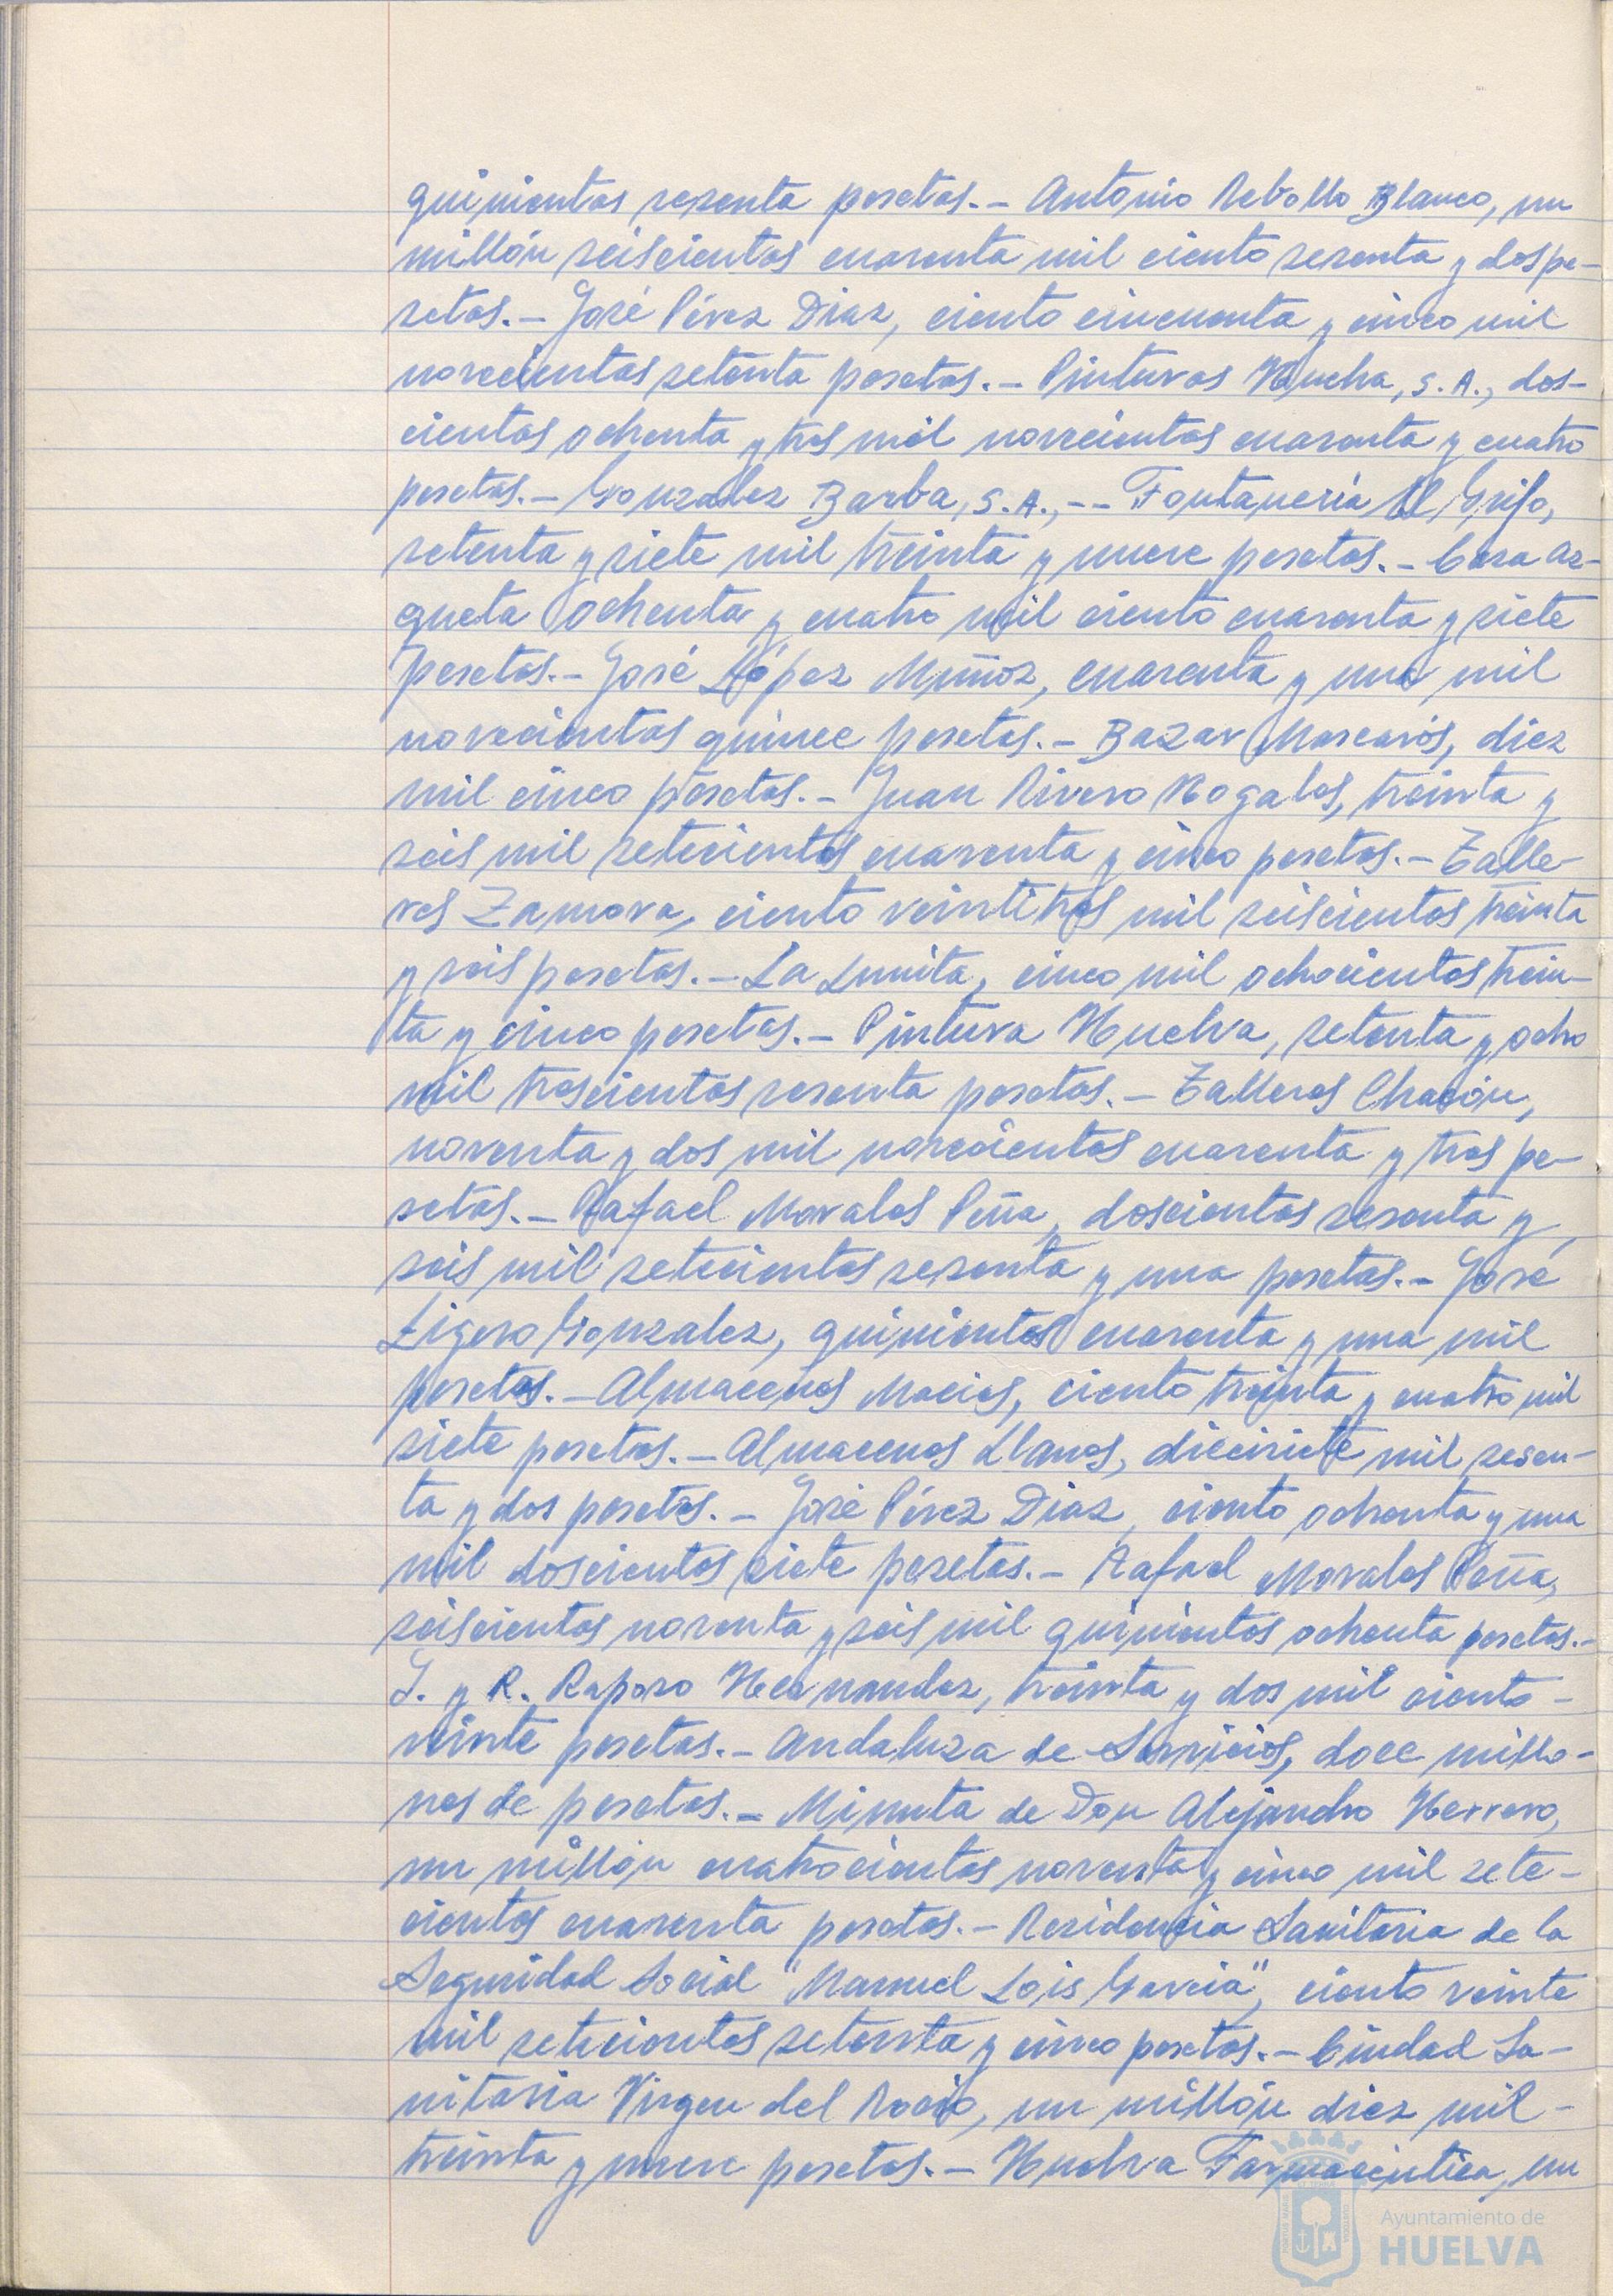 quinientas sesenta pesetas.- Antonio Rebollo Blanco, un
millón seiscientas cuarenta mil ciento sesenta y dos pe-
setas.- José Pérez Diaz, ciento cincuenta y cinco mil
novecientas setenta pesetas.- Pinturas Huelva, S.A., dos-
cientas ochenta y tres mil novecientas cuarenta y cuatro
pesetas.- Gonzalez Barba, S.A.,-- Fontanería El Grifo,
setenta y siete mil treinta y nueve pesetas.- Casa Az-
queta ochenta y cuatro mil ciento cuarenta y siete
pesetas.- José López Muñoz, cuarenta y una mil
novecientas quince pesetas.- Bazar Mascarós, diez
mil cinco pesetas.- Juan Rivero Nogales, treinta y
seis mil setecientas cuarenta y cinco pesetas.- Talle-
res Zamora, ciento veintitres mil seiscientas treinta
y seis pesetas.- La Lunita, cinco mil ochocientas trein-
ta y cinco pesetas.- Pintura Huelva, setenta y ocho
mil trescientas sesenta pesetas.- Talleres Chacón,
noventa y dos mil novecientas cuarenta y tres pe-
setas.- Rafael Morales Peña, doscientas sesenta y
seis mil setecientas sesenta y una pesetas.- José
Ligero Gonzalez, quinientas cuarenta y una mil
pesetas.- Almacenes Macias, ciento treinta y cuatro mil
siete pesetas.- Almacenes Llanos, diecisiete mil sesen-
ta y dos pesetas.- José Pérez Diaz, ciento ochenta y una
mil doscientas siete pesetas.- Rafael Morales Peña,
seiscientas noventa y seis mil quinientas ochenta pesetas.-
J. y R. Raposo Hernandez, treinta y dos mil ciento -
veinte pesetas.- Andaluza de Servicios, doce millo-
nes de pesetas.- Minuta de Don Alejandro Herrero,
un millón cuatrocientas noventa y cinco mil sete-
cientas cuarenta pesetas.- Residencia Sanitaria de la
Seguridad Social "Manuel Lois Garcia", ciento veinte
mil setecientas setenta y cinco pesetas.- Ciudad Sa-
nitaria Virgen del Rocio, un millón diez mil -
treinta y nueve pesetas.- Huelva Farmacéutica, un
Ayuntamiento de
HUELVA